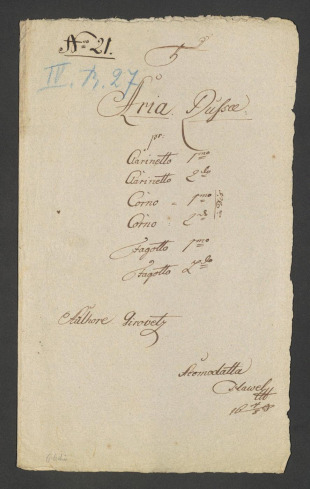 Nro 21.
5
IV. A, 27
Aria. Russee.
pr:
Clarinetto 1mo
Clarinetto 2do
Corno - 1mo
Corno 2do
Fagotto 1mo
Fagotto 2do
Authore Girovetz
Acomodatta
Havel